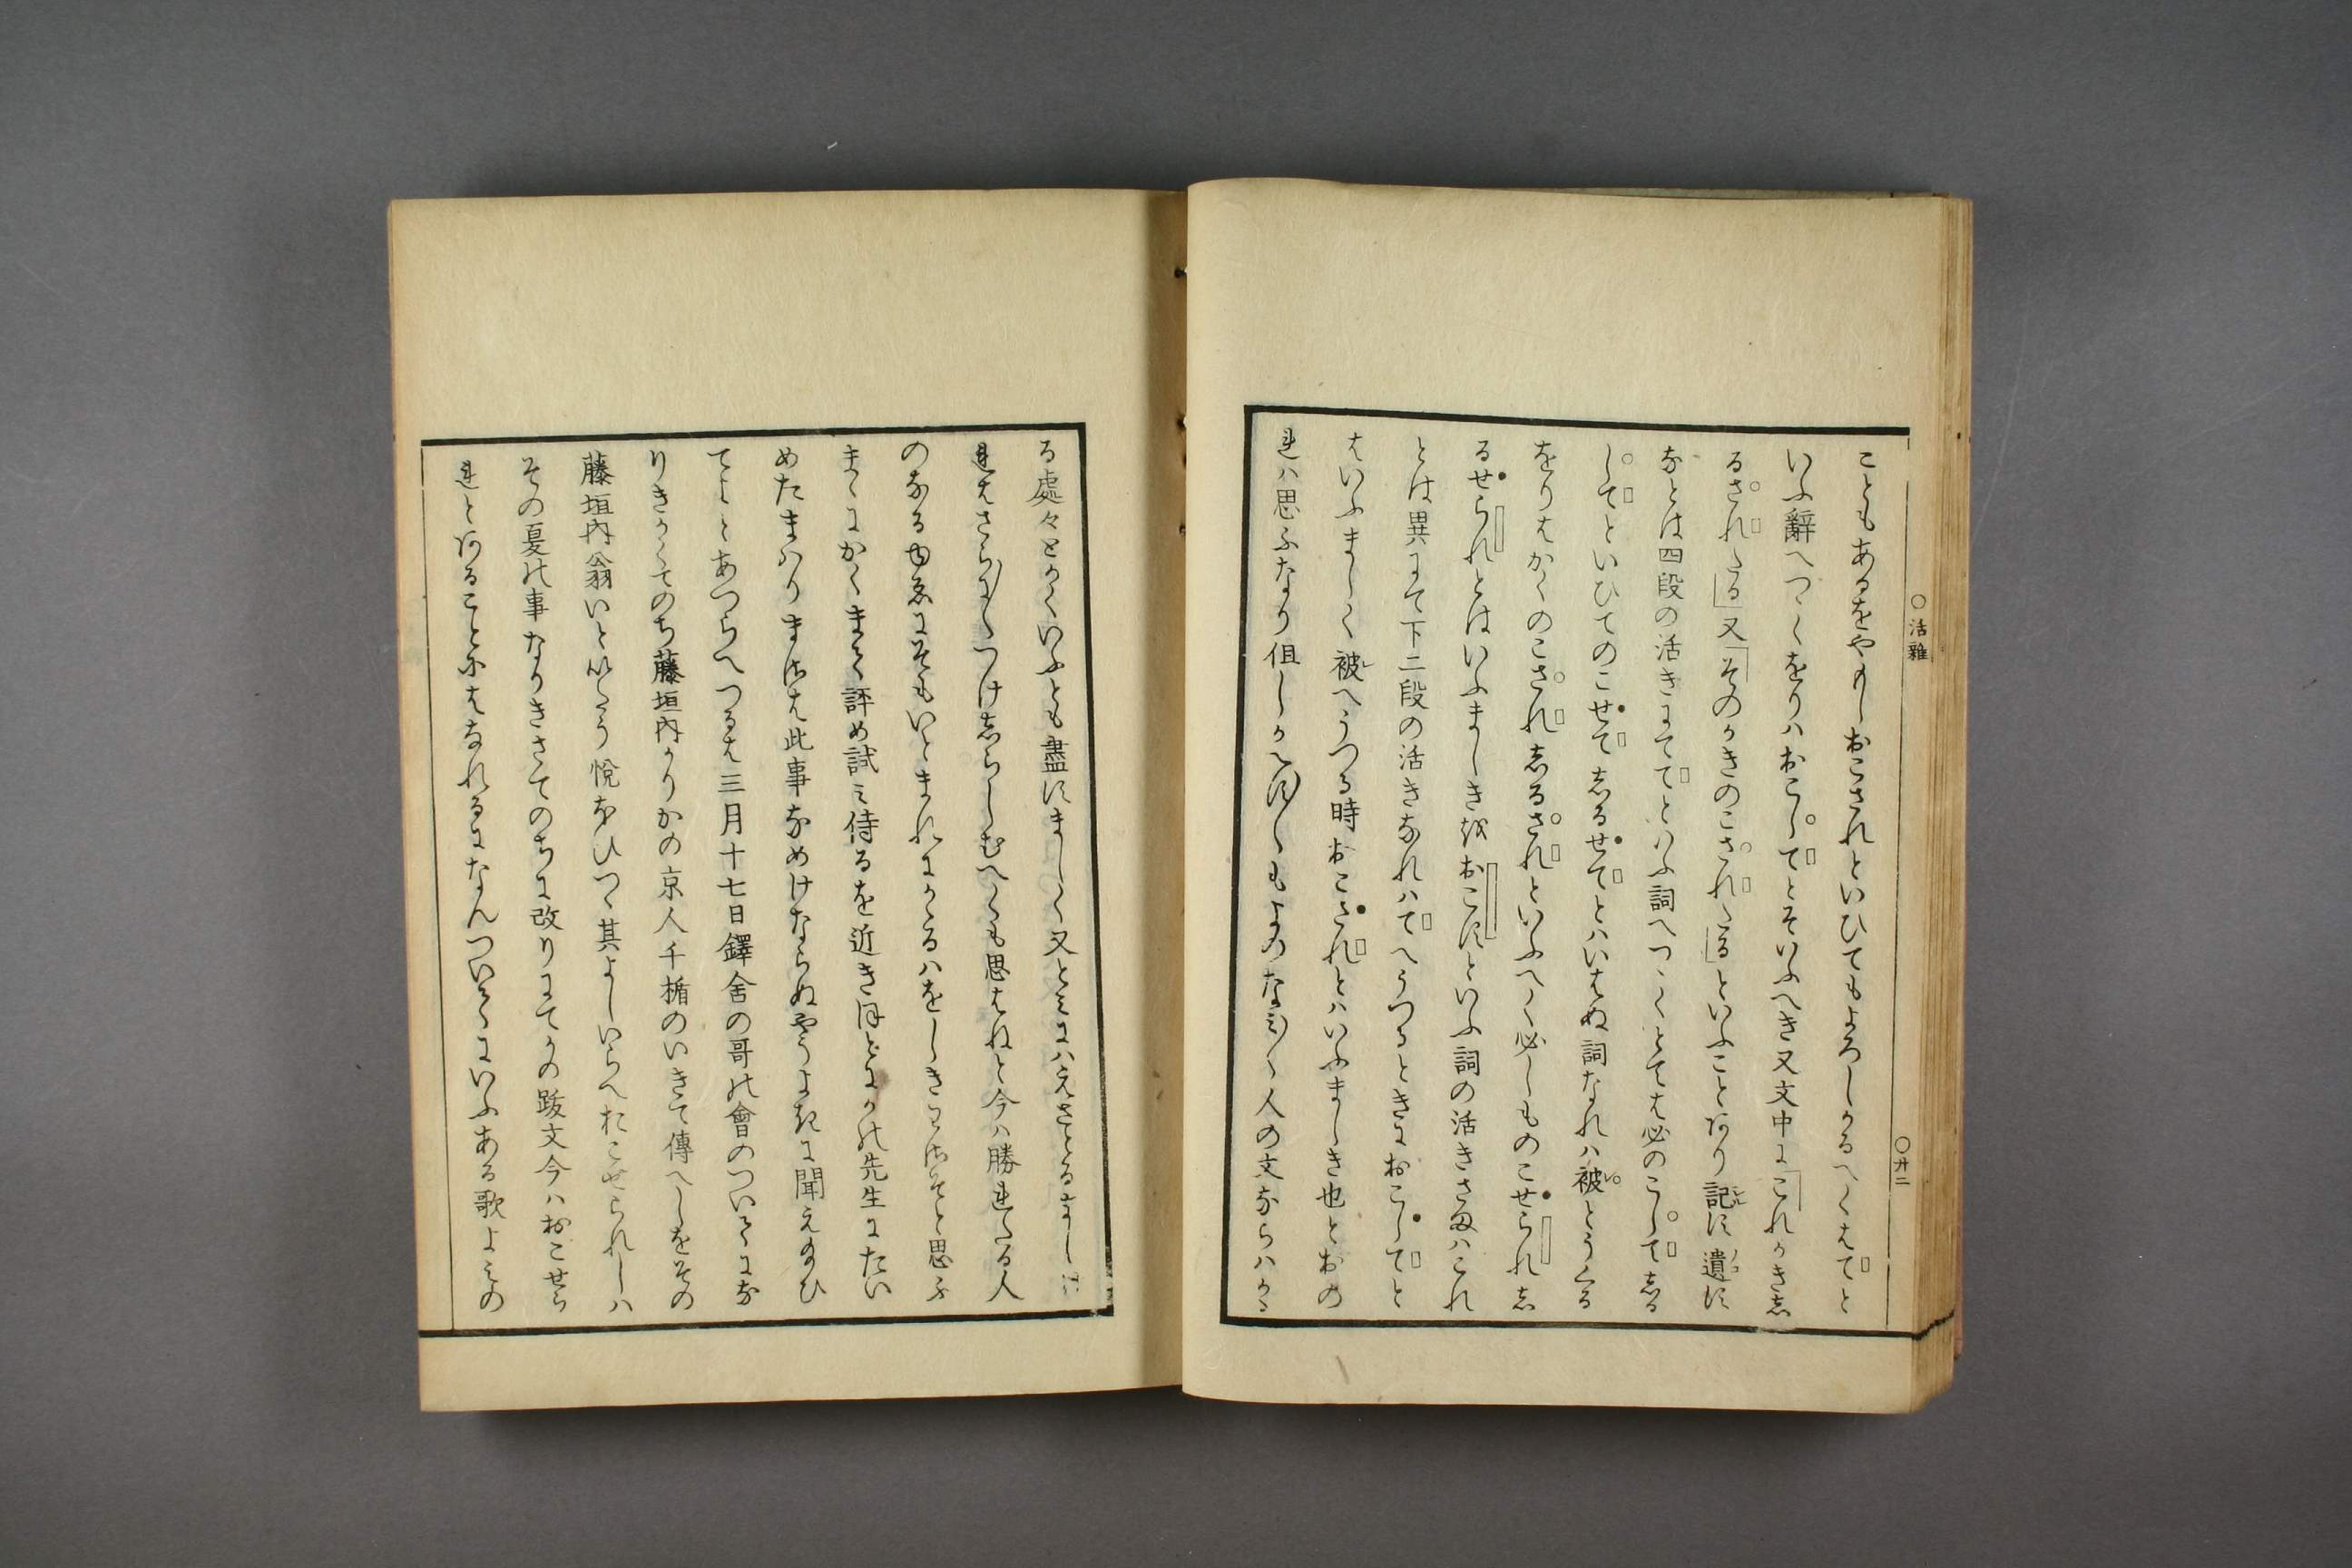 ○活雜
○廿二
こともあるをやめしおこされといひてもよろしかるへくはてと
いふ辭へつゝくをりハおこしてとそいふへき又文中に「これかき志
るされたる」又「そのかきのこされたる」といふことあり記す遺す
なとは四段の活きにててといふ詞へつゝくとては必のこして志る
してといひてのこせて志るせてとハいはぬ詞なれハ被とうくる
をりはかくのこされ志るされといふへく必しものこせられ志
るせられとはいふましき越おこすといふ詞の活きさまハこれ
とは異にて下二段の活きなれハてへうつるときにおこしてと
はいふましく被へうつる時おこされとハいふましき也とおの
れハ思ふなり但しかへす〳〵もよのなみ〳〵人の文ならハかゝ
る處々をかくいふとも盡すましく又とみにハえさとるまし
れはさらに〳〵つけ志らしむへくも思はねと今ハ勝れたる人
のなるゆゑにそもいとまれにかゝるハをしきわさそと思ふ
まゝにかくまて評め試み侍るを近きほとにかの先生にたい
めたまハりまさは此事なめけならぬやうよきに聞え給ひ
てよとあつらへつるは三月十七日鐸舍の哥の會のついてにな
りきかくてのち藤垣内かりかの京人千楯のいきて傳へしをその
藤垣内翁いといたう悅なひつゝ其よしいらへおこせられしハ
その夏の事なりきさてのちに改りにてかの跋文今ハおこせら
れとあることにはなれるになんついてにいふある歌よみの